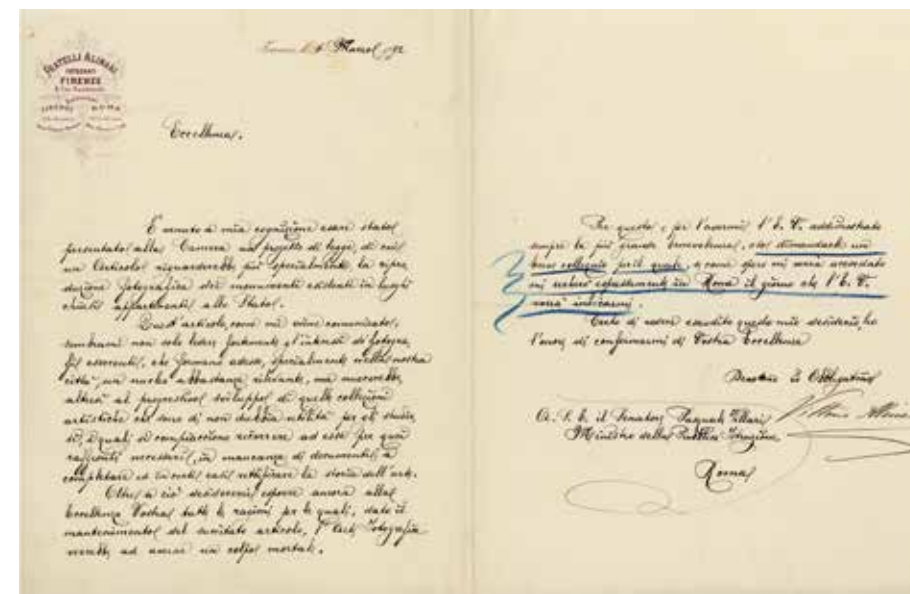 FRATELLI ALINARI
FIRENZE
FIRENZE ROMA
Eccellenza,
È venuto a mia cognizione essere stato
presentato alla Camera un progetto di legge, di cui
un Articolo riguarderebbe più specialmente la ripro
duzione fotografica dei monumenti esistenti in luoghi
chiusi appartenenti allo Stato.
Quest'articolo, come mi viene comunicato,
sembrami non solo ledere fortemente gl'interessi di Fotogra
fi esercenti, che formano adesso, specialmente nella nostra
città, un nucleo abbastanza rilevante, ma nuocerebbe
altresì al progressivo sviluppo di quelle collezioni
artistiche che sono di non dubbia utilità per gli studio
si, i quali si compiacciono ricorrere ad esse per quei
raffronti necessari, in mancanza di documenti, a
completare ed in certi casi rettificare la storia dell'arte.
Oltre a ciò desidererei esporre ancora alla
Eccellenza Vostra tutte le ragioni per le quali, dato il
mantenimento del suvvitato articolo, l'Arte Fotografica
verrebbe ad avere un colpo mortale.
Per questo e per l'avermi l'E. V. addimostrato
sempre la più grande benevolenza, oso dimandarle un
breve colloquio pel quale, e come spero mi verrà accordato
mi recherò espressamente in Roma il giorno che l'E. V.
vorrà indicarmi.
Certo di essere esaudito questo mio desiderio, ho
l'onore di confermarmi di Vostra Eccellenza
Devotmo ed Obbligatmo
A. S. E. il Senatore Pasquale Villari
Ministro della Pubblica Istruzione
Roma